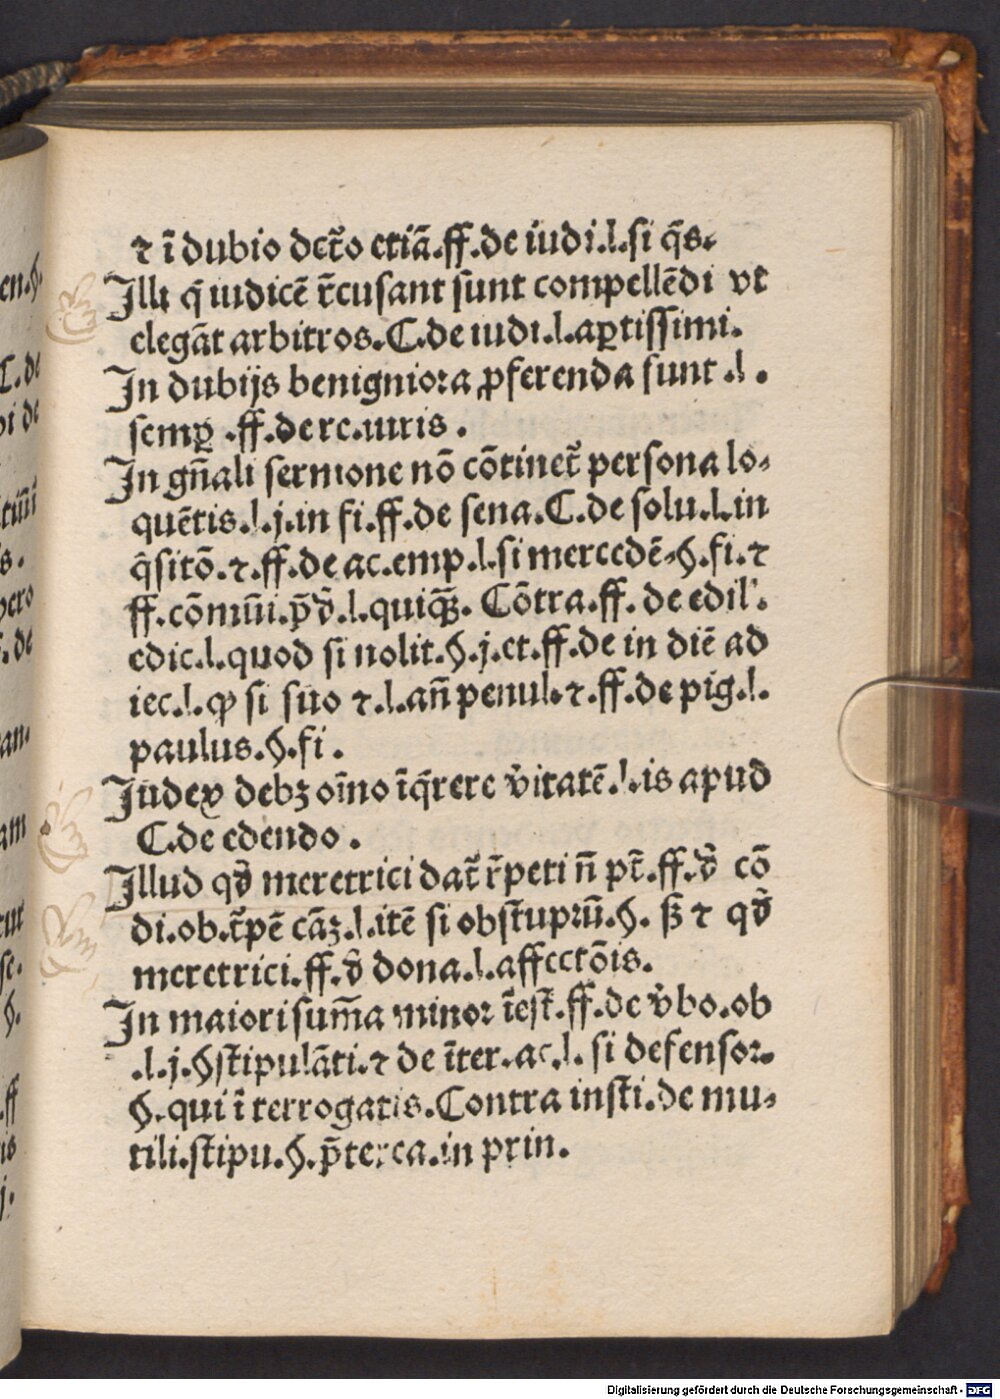 ⁊ ī dubio dct̄o etiā.ff.de iudi.l.si q̄s.
Illi q̄ iudicē r̄cusant sunt compellēdi vt
elegāt arbitros.C.de iudi.l.aꝑtissimi.
In dubijs benigniora ꝓferenda sunt .l.
semꝑ .ff.de re.iuris.
In gn̄ali sermone nō cōtinet̄ persona lo⸗
quētis.l.j.in fi.ff.de sena.C.de solu.l.in
q̄sitō.⁊.ff.de ac.emp.l.si mercedē.§.fi.⁊
ff.cōmūi.p̄d̄.l.quiqꝫ. Cōtra.ff.de edil'.
edic.l.quod si nolit.§.j.et.ff.de in diē ad
iec.l.ꝙ si suo ⁊.l.an̄ penul.⁊.ff.de pig.l.
paulus.§.fi.
Iudex debꝫ oīno īq̄rere v̄itatē.l.is apud
C.de edendo.
Illud qd̄ meretrici dat̄ r̄peti n̄ pt̄.ff.d̄ cō
di.ob.t̄pē cāꝫ.l.itē si obst̄uprū.§. sꝫ ⁊ qd̄
meretrici.ff.d̄ dona.l.affectōis.
In maiori sum̄a minor īest̄.ff.de v̄bo.ob
.l.j.§stipulāti.⁊ de īter.ac.l. si defensor.
§.qui ī terrogatis.Contra insti.de inu⸗
tili.stipu.§.p̄terea.in prin.
en.§.
C.de
pi de
s.
pero
.de
an.
am
tur
se.
§.
.ff
is
j.
Digitalisierung gefördert durch die Deutsche Forschungsgemeinschaft - DFG